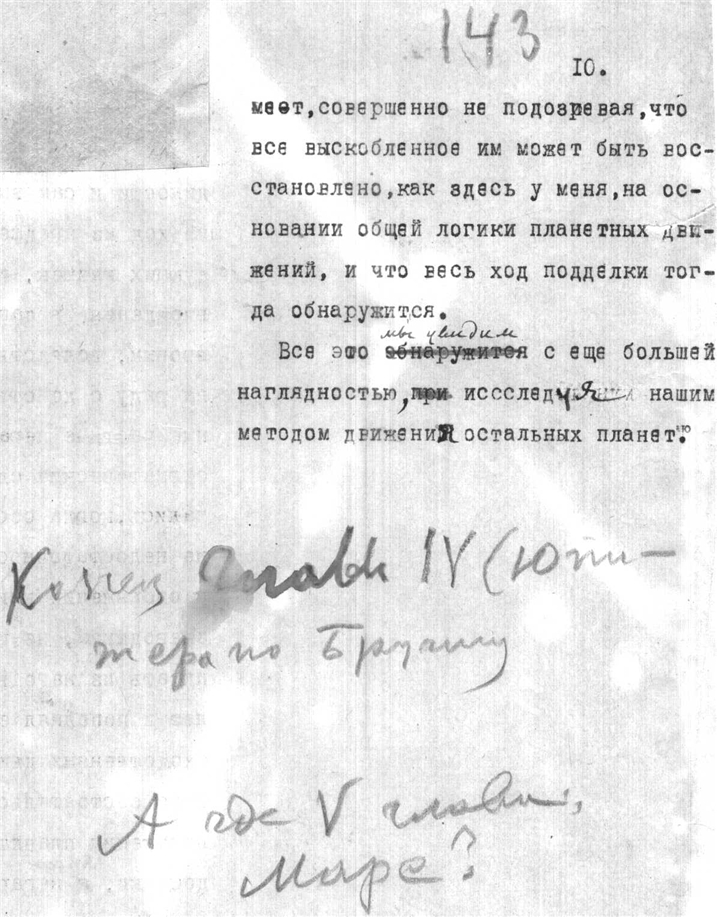 143
10.
меет,совершенно не подозревая,что
все выскобленное им может быть вос-
становлено,как здесь у меня,на ос-
новании общей логики планетных дви-
жений, и что весь ход подделки тог-
да обнаружится.
мы увидим
Все это обнаружится с еще большей
наглядностью, при исссследуя нашим
методом движения остальных планет.
Конец главы IV (Юпи-
тера по Бругшу
А где V глава,
Марс?